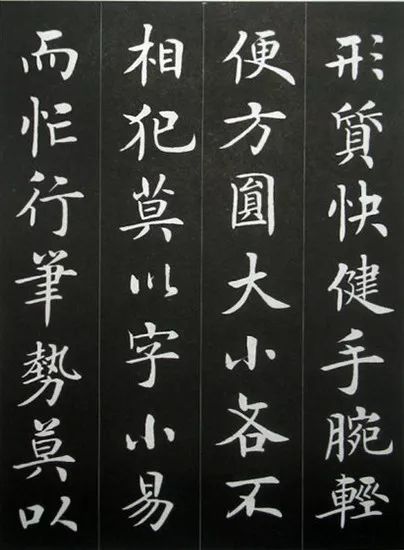 形質快健手腕輕
便方圓大小各不
相犯莫以字小易
而忙行筆勢莫以